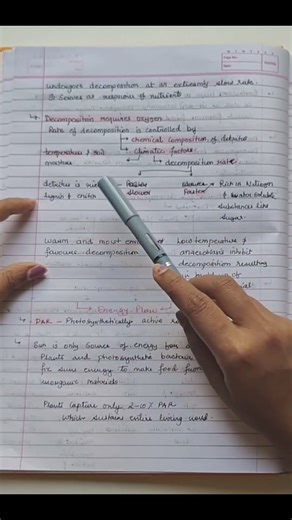 undergoes decomposition at an extremely slow rate
& serves as reservoir of nutrients
Decomposition requires oxygen
Rate of decomposition is controlled by
chemical composition of detritus
temperature & soil climatic factors
moisture decomposition rate
detritus is Rich in Nitrogen
lignin & chitin slower & water soluble
substances like
sugar
Warm and moist
favours decomposition
Low temperature &
anaerobiosis inhibit
decomposition resulting
Energy Flow
PAR - Photosynthetically active
Sun is only source of energy for
Plants and photosynthetic bacteria
fix suns energy to make food from
inorganic materials
Plants capture only 2-10% PAR
which sustain entire living world.